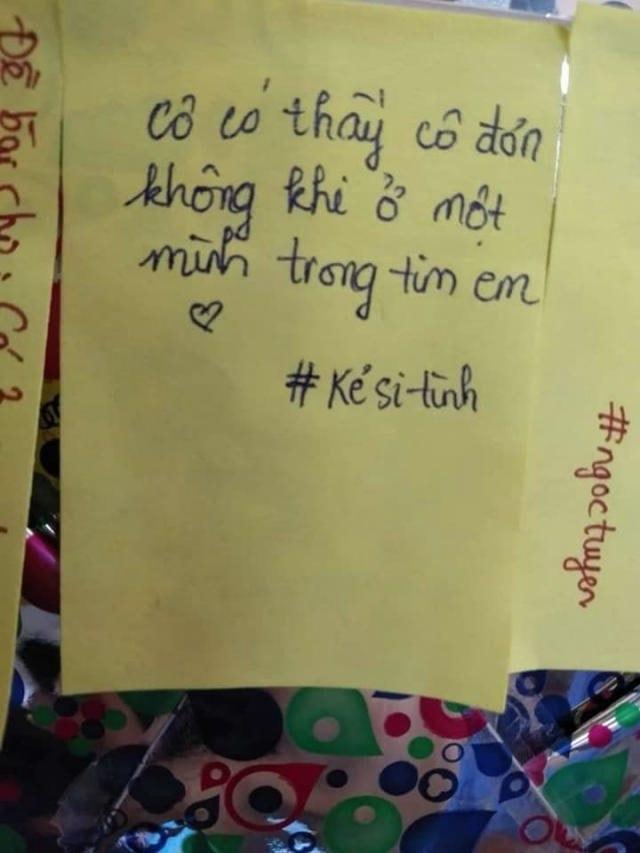 Đề bài cho: Có 2
cô có thấy cô đơn
không khi ở một
mình trong tim em
♡
#Kẻ si tình
#ngoctuyen